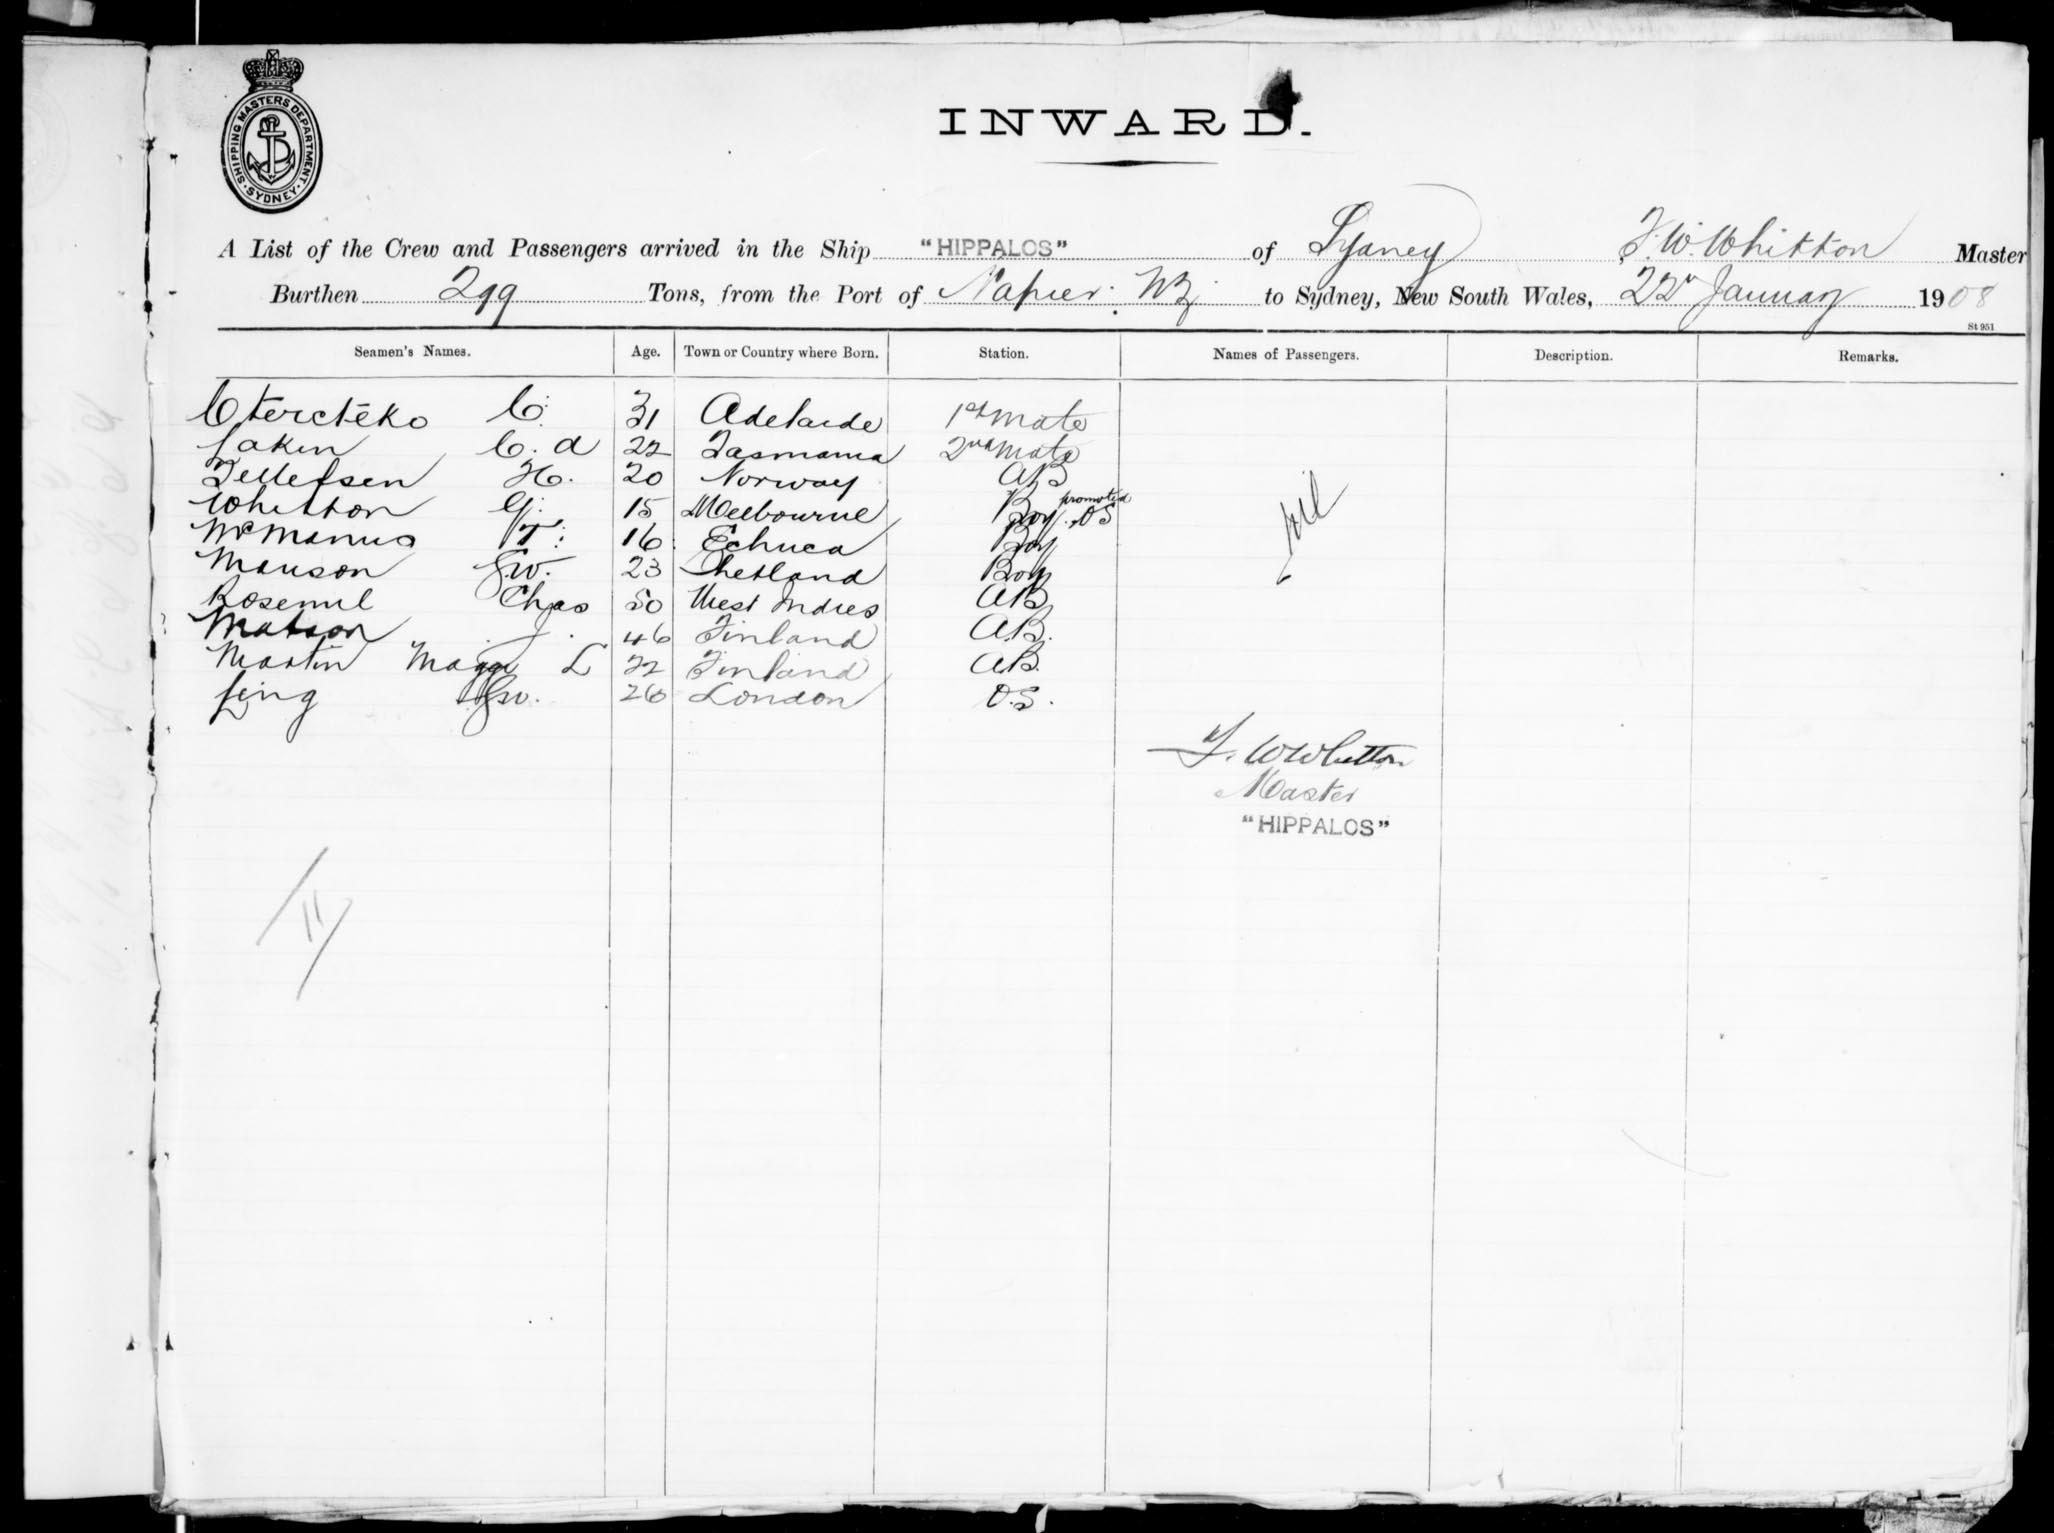 SHIPPING MASTERS DEPARTMENT · SYDNEY ·
INWARD.
A List of the Crew and Passengers arrived in the Ship "HIPPALOS" of Sydney, F. W. Whitton Master
Burthen 299 Tons, from the Port of Napier. NZ to Sydney, New South Wales, 22 January 1908
St 951
Seamen's Names. Age. Town or Country where Born. Station. Names of Passengers. Description. Remarks.
C. 31 Adelaide 1st Mate
Lakin C. A 22 Tasmania 2nd Mate
Tellefsen H. 20 Norway AB
Whitton G. 15 Melbourne Boy promoted OS
McManus T. 16 Echuca Boy
Manson J.W. 23 Shetland Boy
Chas 50 West Indies AB
Matson J. 46 Finland A.B.
Martin L 22 Finland A.B.
Ling 26 London O.S.
Nil
F. W Whitton
Master
"HIPPALOS"
11